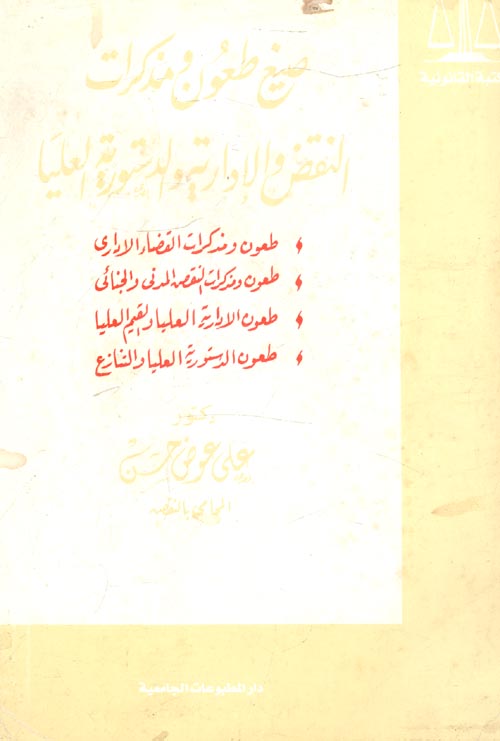 المكتبة القانونية
صيغ طعون ومذكرات
النقض والإدارية والدستورية العليا
طعون ومذكرات القضاء الإدارى
طعون ومذكرات النقض المدنى والجنائى
طعون الإدارية العليا والقيم العليا
طعون الدستورية العليا والتنازع
دكتور
على عوض حسن
المحامى بالنقض
دار المطبوعات الجامعية